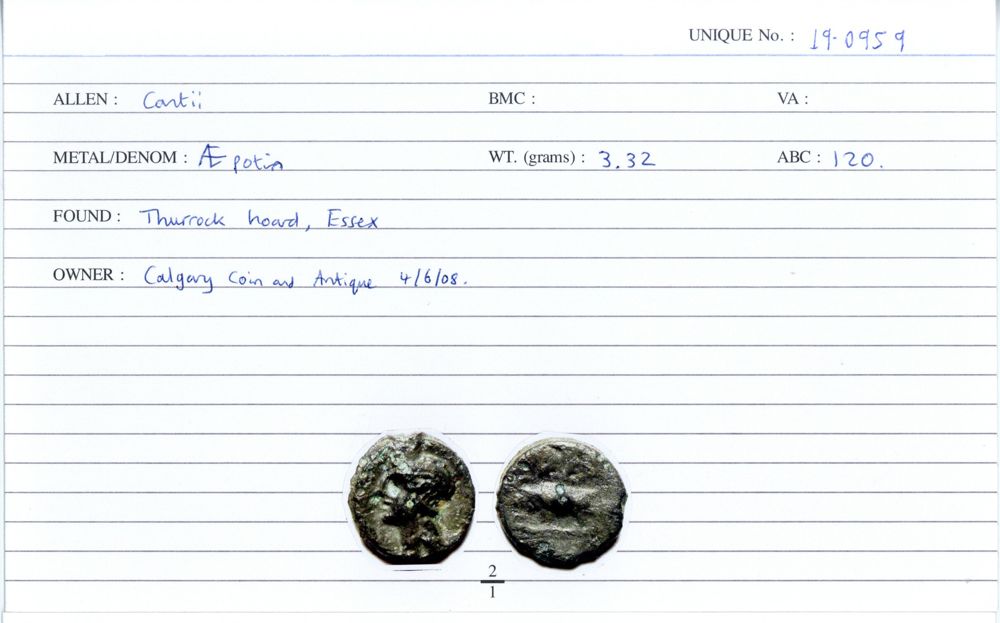 UNIQUE No. : 19-0959
ALLEN : Cantii BMC : VA :
METAL/DENOM : Æ potin WT. (grams) : 3.32 ABC : 120.
FOUND : Thurrock hoard, Essex
OWNER : Calgary Coin and Antique 4/6/08.
2
1